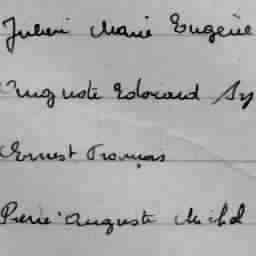 Julien Marie Eugène
Auguste Edouard Sy
Ernest François
Pierre Auguste Michel